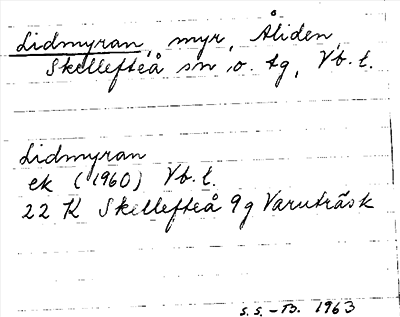 Lidmyran, myr, Åliden
Skellefteå sn o. tg, Vb. l.
Lidmyran
ek (1960) Vb. l.
22 K Skellefteå 9g Varuträsk
S.S. - B. 1963